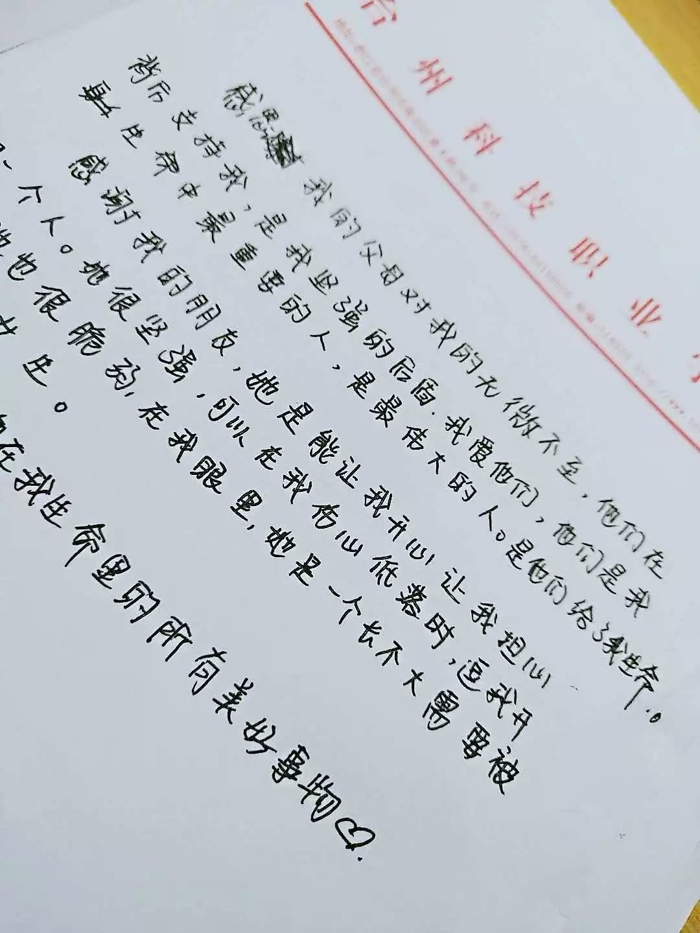 台州科技职业
感恩我的父母对我的无微不至，他们在
背后支持我，是我坚强的后盾.我爱他们，他们是我
生命中最重要的人，是最伟大的人。是他们给了我生命.。
感谢我的朋友，她是能让我开心让我担心
一个人。她很坚强，可以在我伤心低落时，逗我开
她也很脆弱，在我眼里，她是一个长不大需要被
在我生命里的所有美好事物♡.